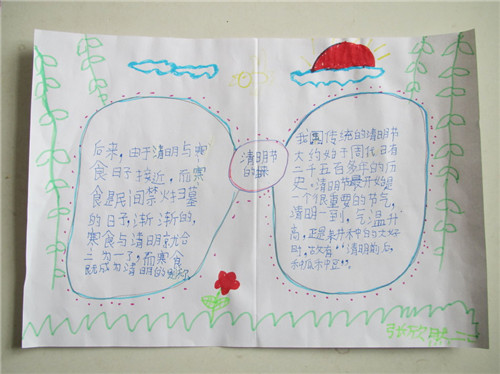 清明节
的由来
我国传统的清明节
大约始于周代,已有
二千五百多年的历
史。清明节最开始是
一个很重要的节气,
清明一到,气温升
高,正是春耕春种的大好
时,故有"清明前后
种瓜种豆"。
后来,由于清明与寒
食日子接近,而寒
食是民间禁火扫墓
的日子,渐渐的,
寒食与清明就合
二为一了,而寒食
既成为清明的别称
张欣